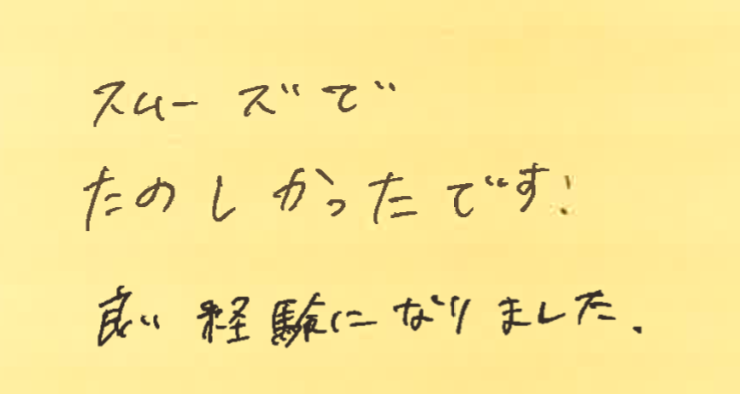 スムーズで
たのしかったです!
良い経験になりました.